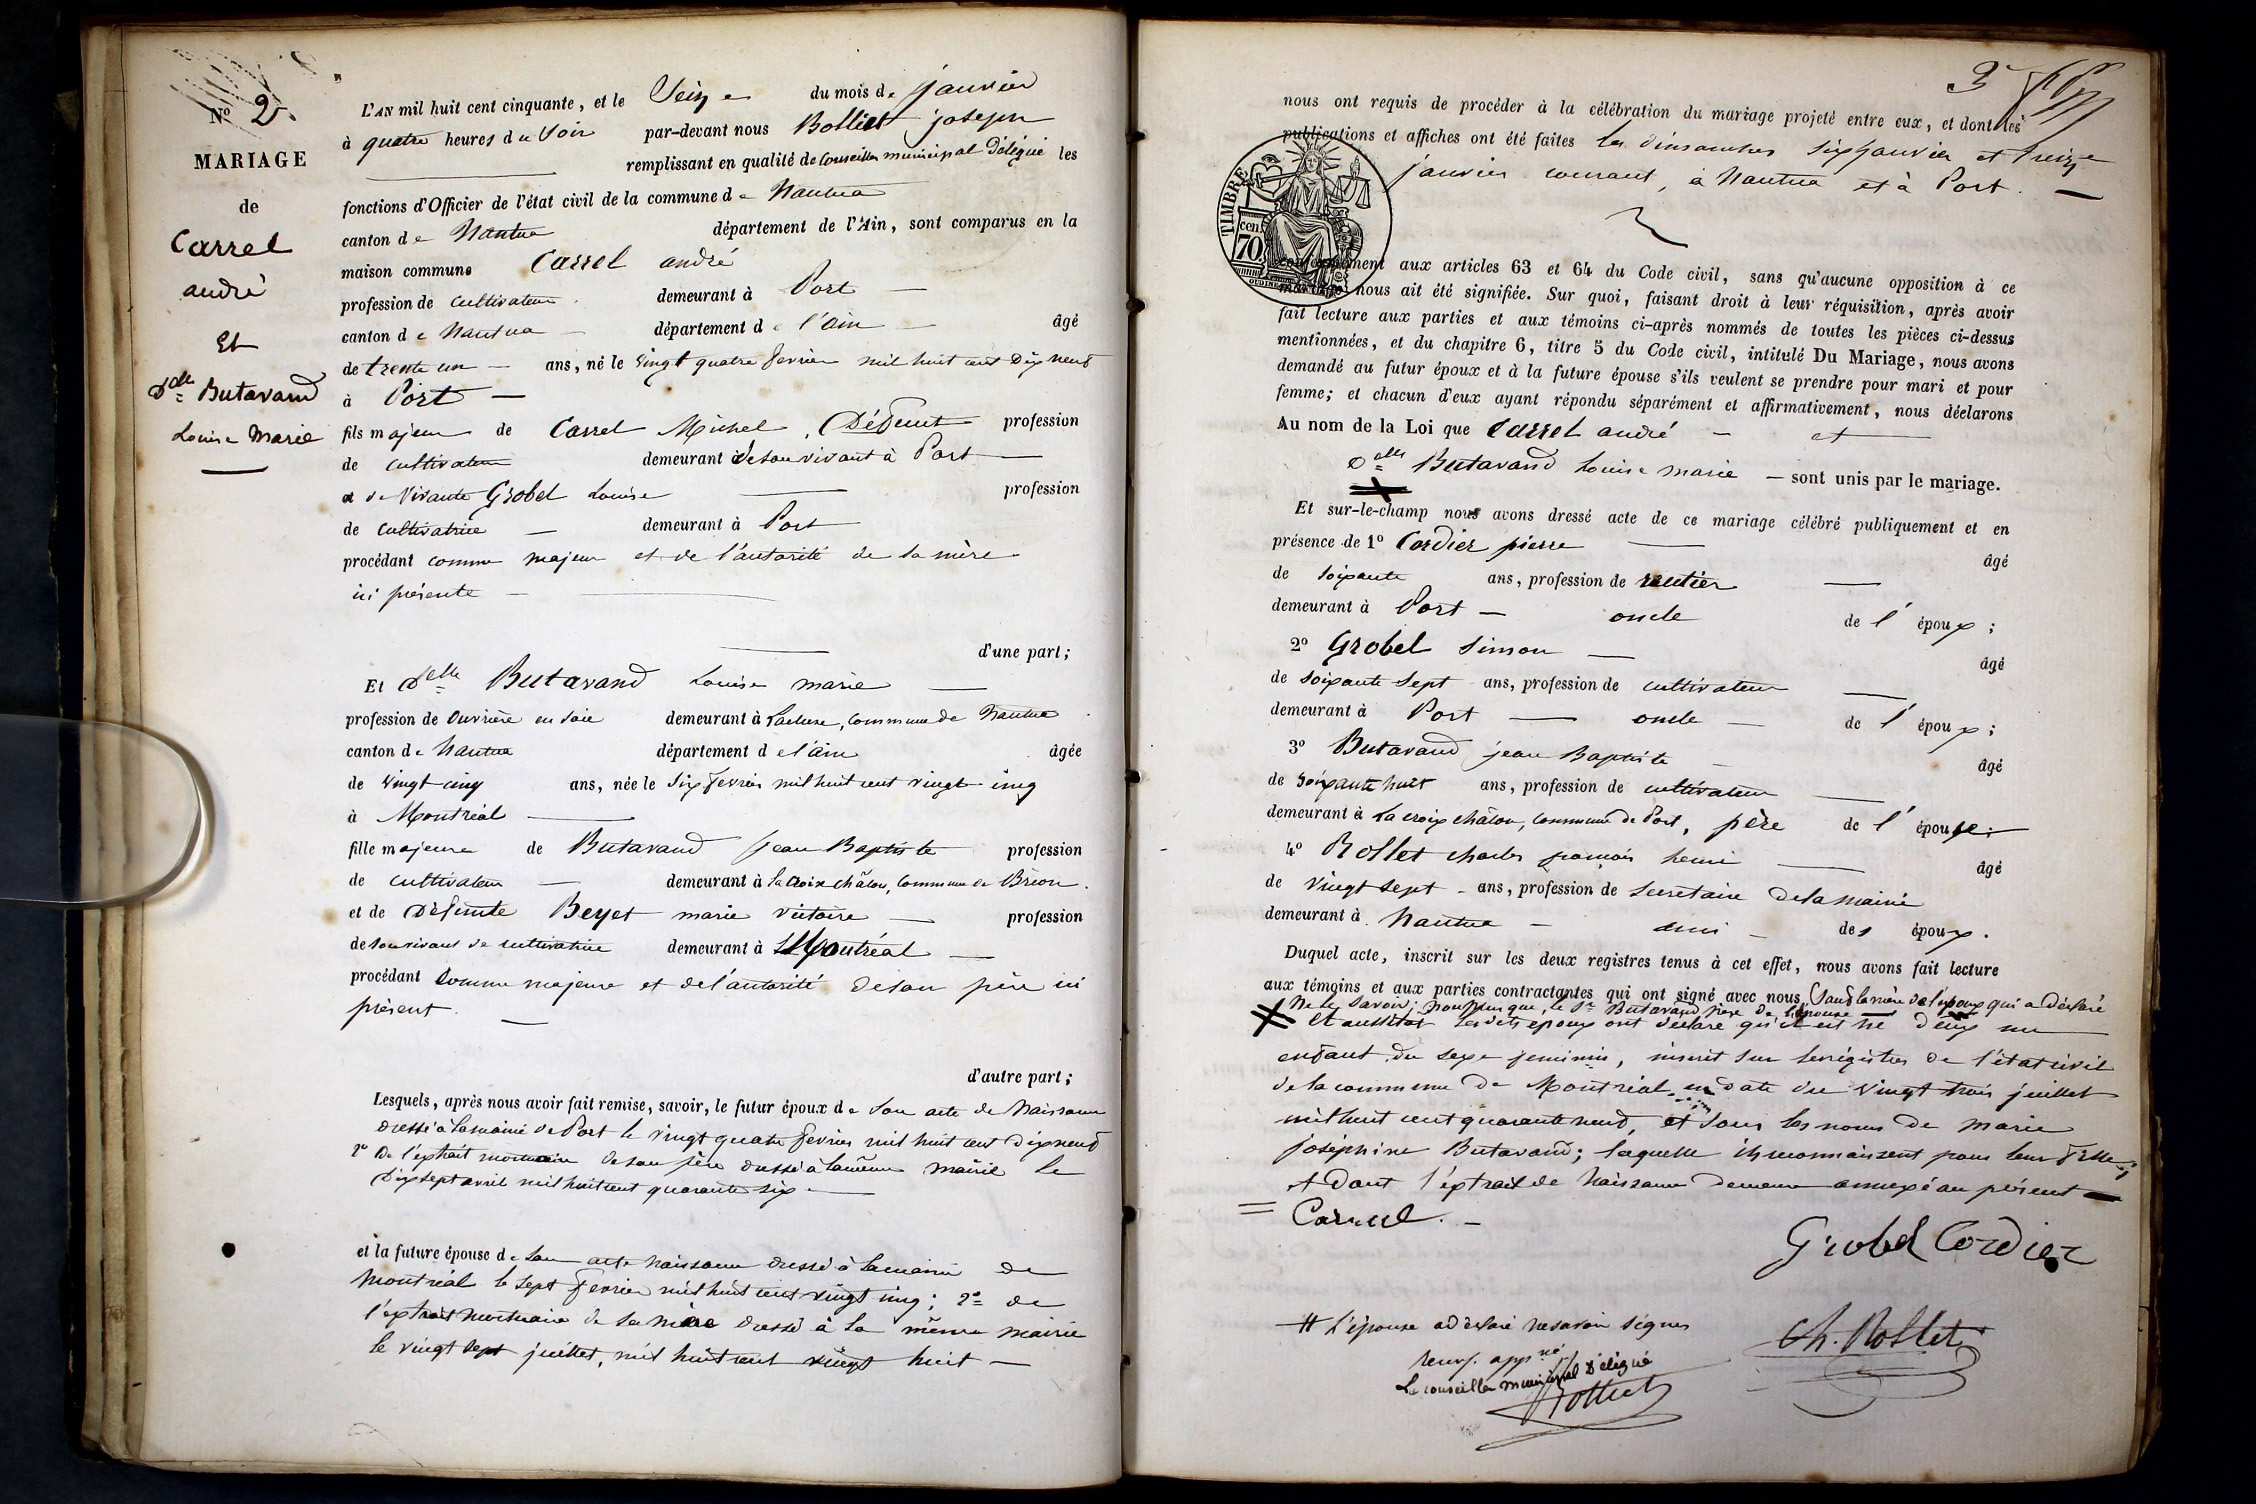 N° 2.
MARIAGE
de
Carrel
andré
Et
Dlle Butavand
Louise Marie
L'AN mil huit cent cinquante, et le Seize du mois de janvier
à quatre heures du Soir par-devant nous Bolliet joseph
remplissant en qualité de Conseiller municipal Délégué les
fonctions d'Officier de l'état civil de la commune de Nantua
canton de Nantua département de l'Ain, sont comparus en la
maison commune Carrel andré
profession de cultivateur demeurant à Port
canton de Nantua département de l'ain âgé
de trente un ans, né le vingt quatre fevrier mil huit cent Dix neuf
à Port
fils majeur de Carrel Michel, Défunt profession
de cultivateur demeurant de son vivant à Port
et de Vivante Grobel Louise profession
de cultivatrice demeurant à Port
procédant comme majeur et de l'autorité de sa mère
ici présente
d'une part;
Et Delle Butavand Louise marie
profession de Ouvrière en soie demeurant à Lacluse, commune de Nantua
canton de Nantua département de l'ain âgée
de vingt cinq ans, née le Six fevrier mil huit cent vingt cinq
à Montréal
fille majeure de Butavand Jean Baptiste profession
de cultivateur demeurant à La Croix châlon, Commune de Brion.
et de Défunte Beyet marie victoire profession
de son vivant de cultivatrice demeurant à Montréal
procédant comme majeure et de l'autorité de son père ici
présent.
d'autre part;
Lesquels, après nous avoir fait remise, savoir, le futur époux de Son acte de Naissance
dressé à la mairie de Port le vingt quatre fevrier mil huit cent dix neuf
2° De l'extrait mortuaire de son père dressé à la même mairie le
Dix sept avril mil huit cent quarante six
et la future épouse de Son acte naissance dressé à la mairie de
Montréal le sept fevrier mil huit cent vingt cinq; 2° de
l'extrait mortuaire de sa mère dressé à la même mairie
le vingt sept juillet, mil huit cent vingt huit
3
nous ont requis de procéder à la célébration du mariage projeté entre eux, et dont les
publications et affiches ont été faites les dimanches six janvier et treize
janvier courant, à Nantua et à Port.
TIMBRE
70 cen.
conformément aux articles 63 et 64 du Code civil, sans qu'aucune opposition à ce
mariage nous ait été signifiée. Sur quoi, faisant droit à leur réquisition, après avoir
fait lecture aux parties et aux témoins ci-après nommés de toutes les pièces ci-dessus
mentionnées, et du chapitre 6, titre 5 du Code civil, intitulé Du Mariage, nous avons
demandé au futur époux et à la future épouse s'ils veulent se prendre pour mari et pour
femme; et chacun d'eux ayant répondu séparément et affirmativement, nous déclarons
Au nom de la Loi que Carrel andré et
Delle Butavand Louise marie — sont unis par le mariage.
Et sur-le-champ nous avons dressé acte de ce mariage célébré publiquement et en
présence de 1° Cordier pierre âgé
de soixante ans, profession de rentier
demeurant à Port oncle de l'époux;
2° Grobel Simon âgé
de soixante Sept ans, profession de cultivateur
demeurant à Port oncle de l'époux;
3° Butavand jean Baptiste âgé
de soixante huit ans, profession de cultivateur
demeurant à La croix châlon, commune de Port, père de l'épouse;
4° Rollet charles françois henri âgé
de Vingt sept ans, profession de Secretaire de la mairie
demeurant à Nantua ami des époux.
Duquel acte, inscrit sur les deux registres tenus à cet effet, nous avons fait lecture
aux témoins et aux parties contractantes qui ont signé avec nous, sauf la mère de l'époux qui a déclaré
ne le savoir; non plus que, le Sr Butavand père de l'épouse
Et aussitot lesdits epoux ont déclaré qu'il est né d'eux un
enfant du sexe feminin, inscrit sur les régistres de l'état civil
de la commune de Montréal en date du vingt trois juillet
mil huit cent quarante neuf, et sous les noms de marie
joséphine Butavand; laquelle ils reconnaissent pour leur fille;
et dont l'extrait de Naissance demeure annexé au présent
Carrel.
Grobel Cordier
# L'épouse a déclaré ne savoir signer
Ch. Rollet
Renv. appné
Le conseiller municipal Délégué
Bolliet